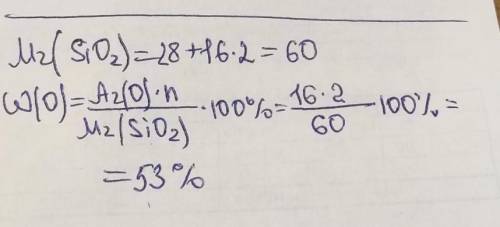 Mr(SiO₂)=28+16·2=60
ω(O)=Ar(O)·n/Mr(SiO₂)·100%=16·2/60·100%=
=53%